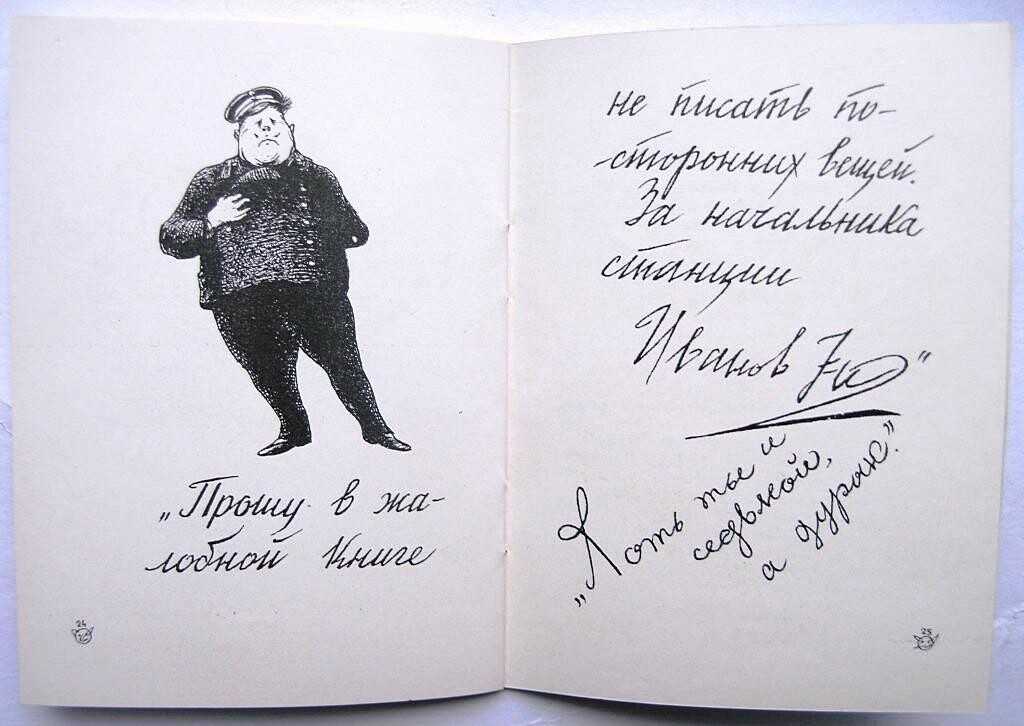 „Прошу в жа-
лобной книге
24
не писать по-
сторонних вещей.
За начальника
станции
Иванов 7-й"
„Хоть ты и
седьмой,
а дурак."
25